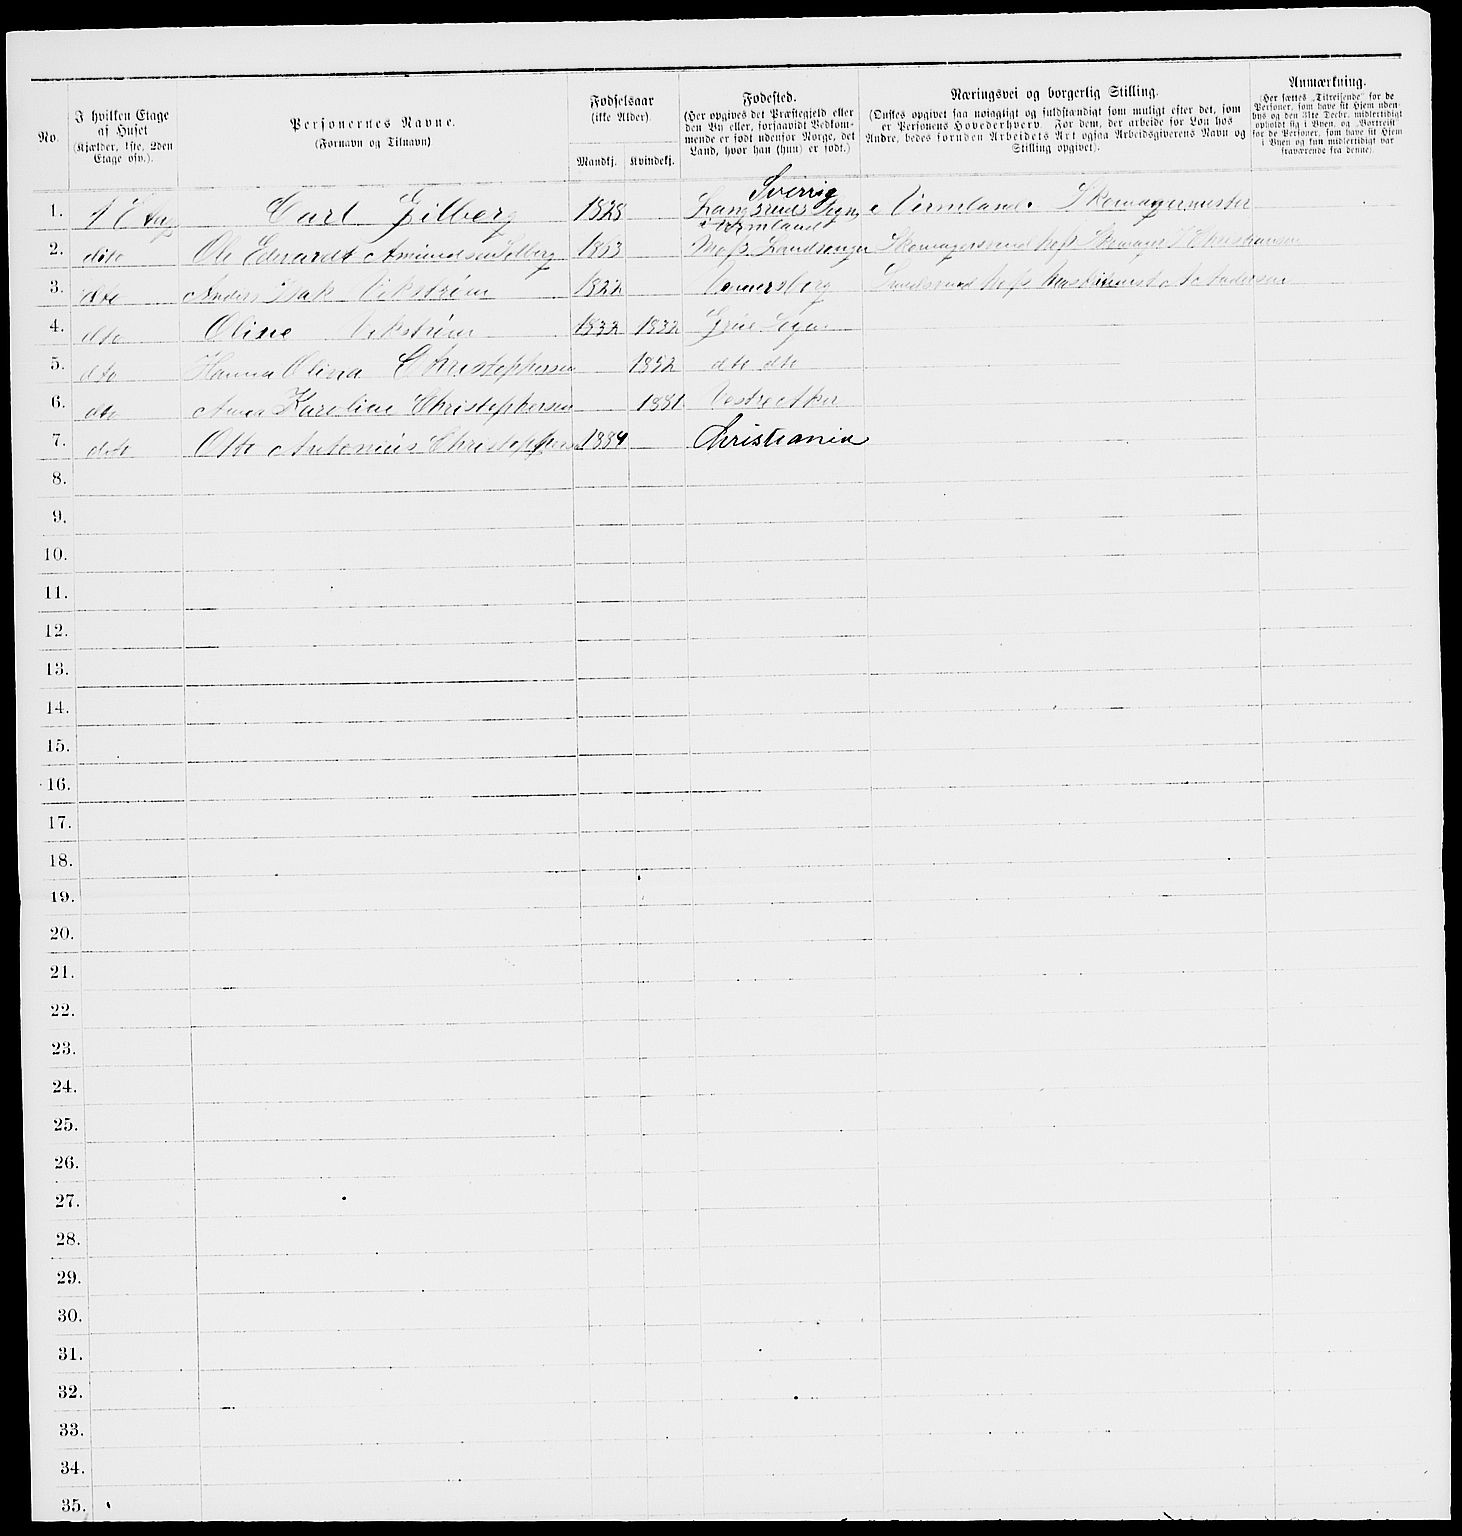 No.
I hvilken Etage
af Huset
(Kjælder, 1ste, 2den
Etage osv.).
Personernes Navne.
(Fornavn og Tilnavn)
Fødselsaar
(ikke Alder).
Mandkj. Kvindekj.
Fødested.
(Her opgives det Præstegjeld eller
den By eller, forsaavidt Vedkom-
mende er født udenfor Norge, det
Land, hvor han (hun) er født.)
Næringsvei og borgerlig Stilling.
(Ønskes opgivet saa nøiagtigt og fuldstændigt som muligt efter det, som
er Personens Hovederhverv. For dem, der arbeide for Løn hos
Andre, bedes foruden Arbeidets Art ogsaa Arbeidsgiverens Navn og
Stilling opgivet).
Anmærkning.
(Her sættes „Tilreisende“ for de
Personer, som have sit Hjem uden-
bys og den 31te Decbr. midlertidigt
opholdt sig i Byen, og „Bortreist“
for de Personer, som have sit Hjem
i Byen og kun midlertidigt var
fraværende fra denne).
Sverrig
1. 1 Etag Carl Gilberg 1828 Langseruds Sogn, Vermland. Skomagermester
i Vermland
2. dito Ole Edvardt Amundsen 1863 Moss Skomagersvend hos Skomager Christiansen
3. dto Anders Isak Vikstrøm 1822 Venersborg hos
4. dto Oline Vikstrøm 1832 1832 Grue Sogn
5. dto Hanna Olina Christophersen 1852 dto dto
6. dto Anna Karoline Christophersen 1881 Vestre Aker
7. dito Otto Antonius Christophersen 1884 Christiania
8.
9.
10.
11.
12.
13.
14.
15.
16.
17.
18.
19.
20.
21.
22.
23.
24.
25.
26.
27.
28.
29.
30.
31.
32.
33.
34.
35.